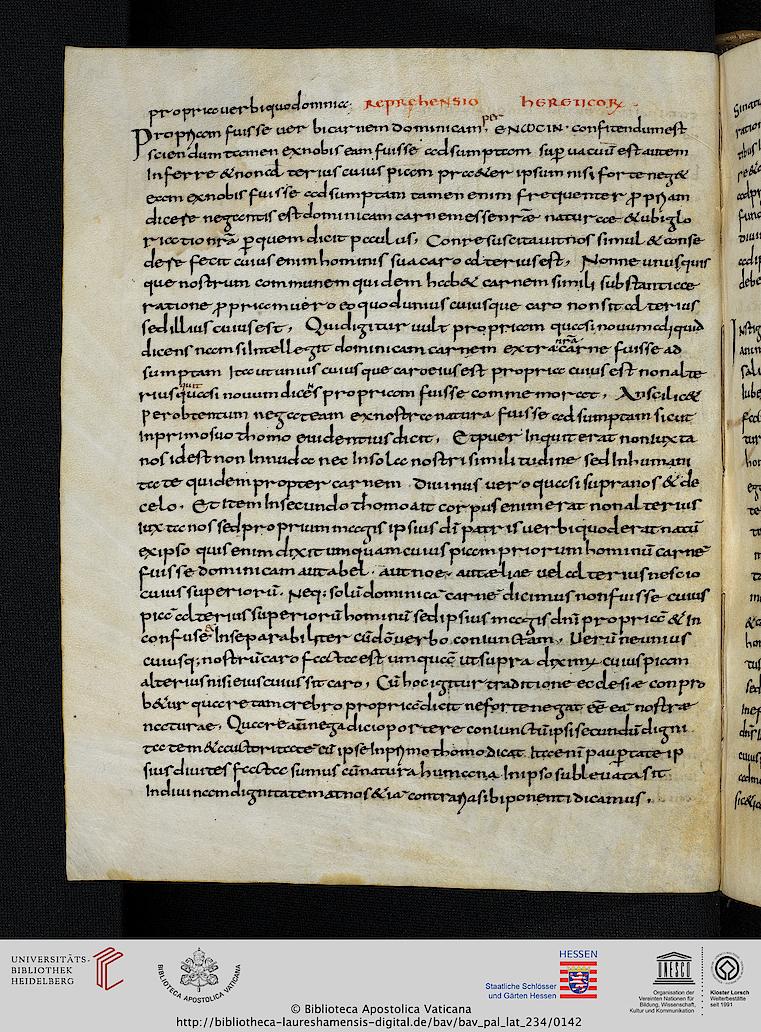 proprie verbi quo dominice REPREHENSIO HERETICORꝝ
Propriam fuisse verbi carnem dominicam per ENωCIN confitendum est
sciendum tamen ex nobis eam fuisse adsumptam supervacuū est autem
Inferre & non alterius cuius piam praeter ipsum nisi forte neg&
eam ex nobis fuisse adsumptam tamen enim frequenter ꝓpriam
dicere negantis est dominicam carnem esse nr̄ae naturae & ubi glo
riatio nr̄a ꝑ quem dicit paulus, Conresuscitavit nos simul & conse
dere fecit cuius enim hominis sua caro alterius est, Nonne unusquis
que nostrum communem quidem hab& carnem simili substantiae
ratione ꝓpriam vero eo quod unius cuiusque caro non sit alterius
sed illius cuius est, Quid igitur vult propriam quasi novum aliquid
dicens nam si Intellegit dominicam carnem extra nr̄a carne fuisse ad
sumptam Ita ut unius cuiusque caro eius est propria cuius est non alte
rius quasi novum dicens propriam fuisse commemorat, An scilic&
per obtentum negat eam ex nostra natura fuisse adsumptam sicut
Inprimo suo thomo evidentius dicit, Et puer Inquit erat non iuxta
nos id est non Innuda nec Insola nostri similitudine sed Inhumani
tate quidem propter carnem divinus vero quasi supra nos & de
celo, Et Item Insecundo thomo ait corpus enim erat non alterius
iuxta nos sed proprium magis ipsius dī patris verbi quod erat natū
ex ipso quis enim dixit umquam cuius piam priorum hominū carnē
fuisse dominicam aut abel aut noe aut aeliae vel alterius nescio
cuius superiorū. Neq; solū dominicā carnē dicimus non fuisse cuius
piā alterius superiorū hominū sed ipsius magis dn̄i propria & In
confuse & Inseparabiliter cū dō verbo coniunctam, Verū ne unius
cuiusq; nostrū caro facta est umquā ut supra diximꝰ cuius piam
alterius nisi eius cuius sit caro, Cū hoc igitur traditione eclesiae conpro
b&ur quare tam crebro propriā dicit ne forte negat eē ea nostrae
naturae, Quare aū nega dici oportere coniunctū ipsi secundū digni
tatem & auctoritate cū ipse Inprimo thomo dicat Ita enī paupertate ip
sius divites facta sumus cū natura humana In ipso sublevata sit
In divinam dignitatem at nos & ia contraria sibi ponenti dicamus.
UNIVERSITÄTS-
BIBLIOTHEK
HEIDELBERG
BIBLIOTHECA APOSTOLICA VATICANA
HESSEN
Staatliche Schlösser
und Gärten Hessen
UNESCO
Organisation der
Vereinten Nationen für
Bildung, Wissenschaft,
Kultur und Kommunikation
Kloster Lorsch
Welterbestätte
seit 1991
© Biblioteca Apostolica Vaticana
http://bibliotheca-laureshamensis-digital.de/bav/bav_pal_lat_234/0142